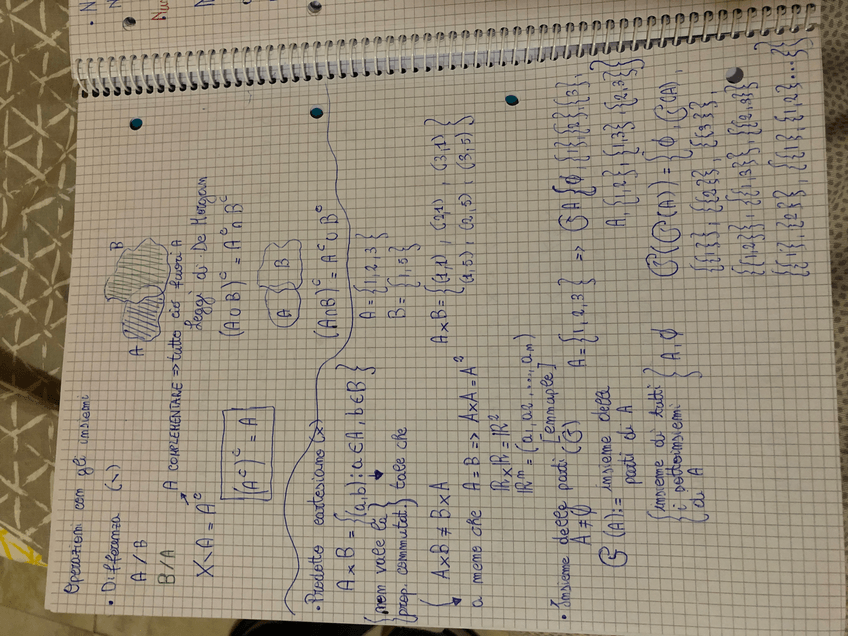 Operazioni con gli insiemi
• Differenza (\)
A / B
B / A
A B
X \ A = Aᶜ
A COMPLEMENTARE => tutto ciò fuori A
(Aᶜ)ᶜ = A
Leggi di De Morgan
(A ∪ B)ᶜ = Aᶜ ∩ Bᶜ
A B
(A∩B)ᶜ = Aᶜ ∪ Bᶜ
• Prodotto cartesiano (x)
A x B = {(a,b) : a ∈ A, b ∈ B}
{non vale la
prop. commutat.} tale che
A = {1, 2, 3}
B = {1, 5}
A x B ≠ B x A
a meno che A = B => A x A = A²
A x B = {(1,1), (2,1), (3,1)
(1,5), (2,5), (3,5)}
ℝ x ℝ = ℝ²
ℝⁿ = (a₁, a₂, ..., aₙ)
[ennuple]
• Insieme delle parti (P)
A ≠ ∅
P(A) := insieme delle
parti di A
{insieme di tutti
i sottoinsiemi
di A} A, ∅
A = {1, 2, 3} => P A {∅ {1}, {2}, {3},
A, {1,2}, {1,3}, {2,3}}
P(P(A)) = {∅, P(A),
{{1}}, {{2}}, {{3}},
{{1,2}}, {{1,3}}, {{2,3}}
{{1}, {2}}, {{1}, {1,2} ...}}